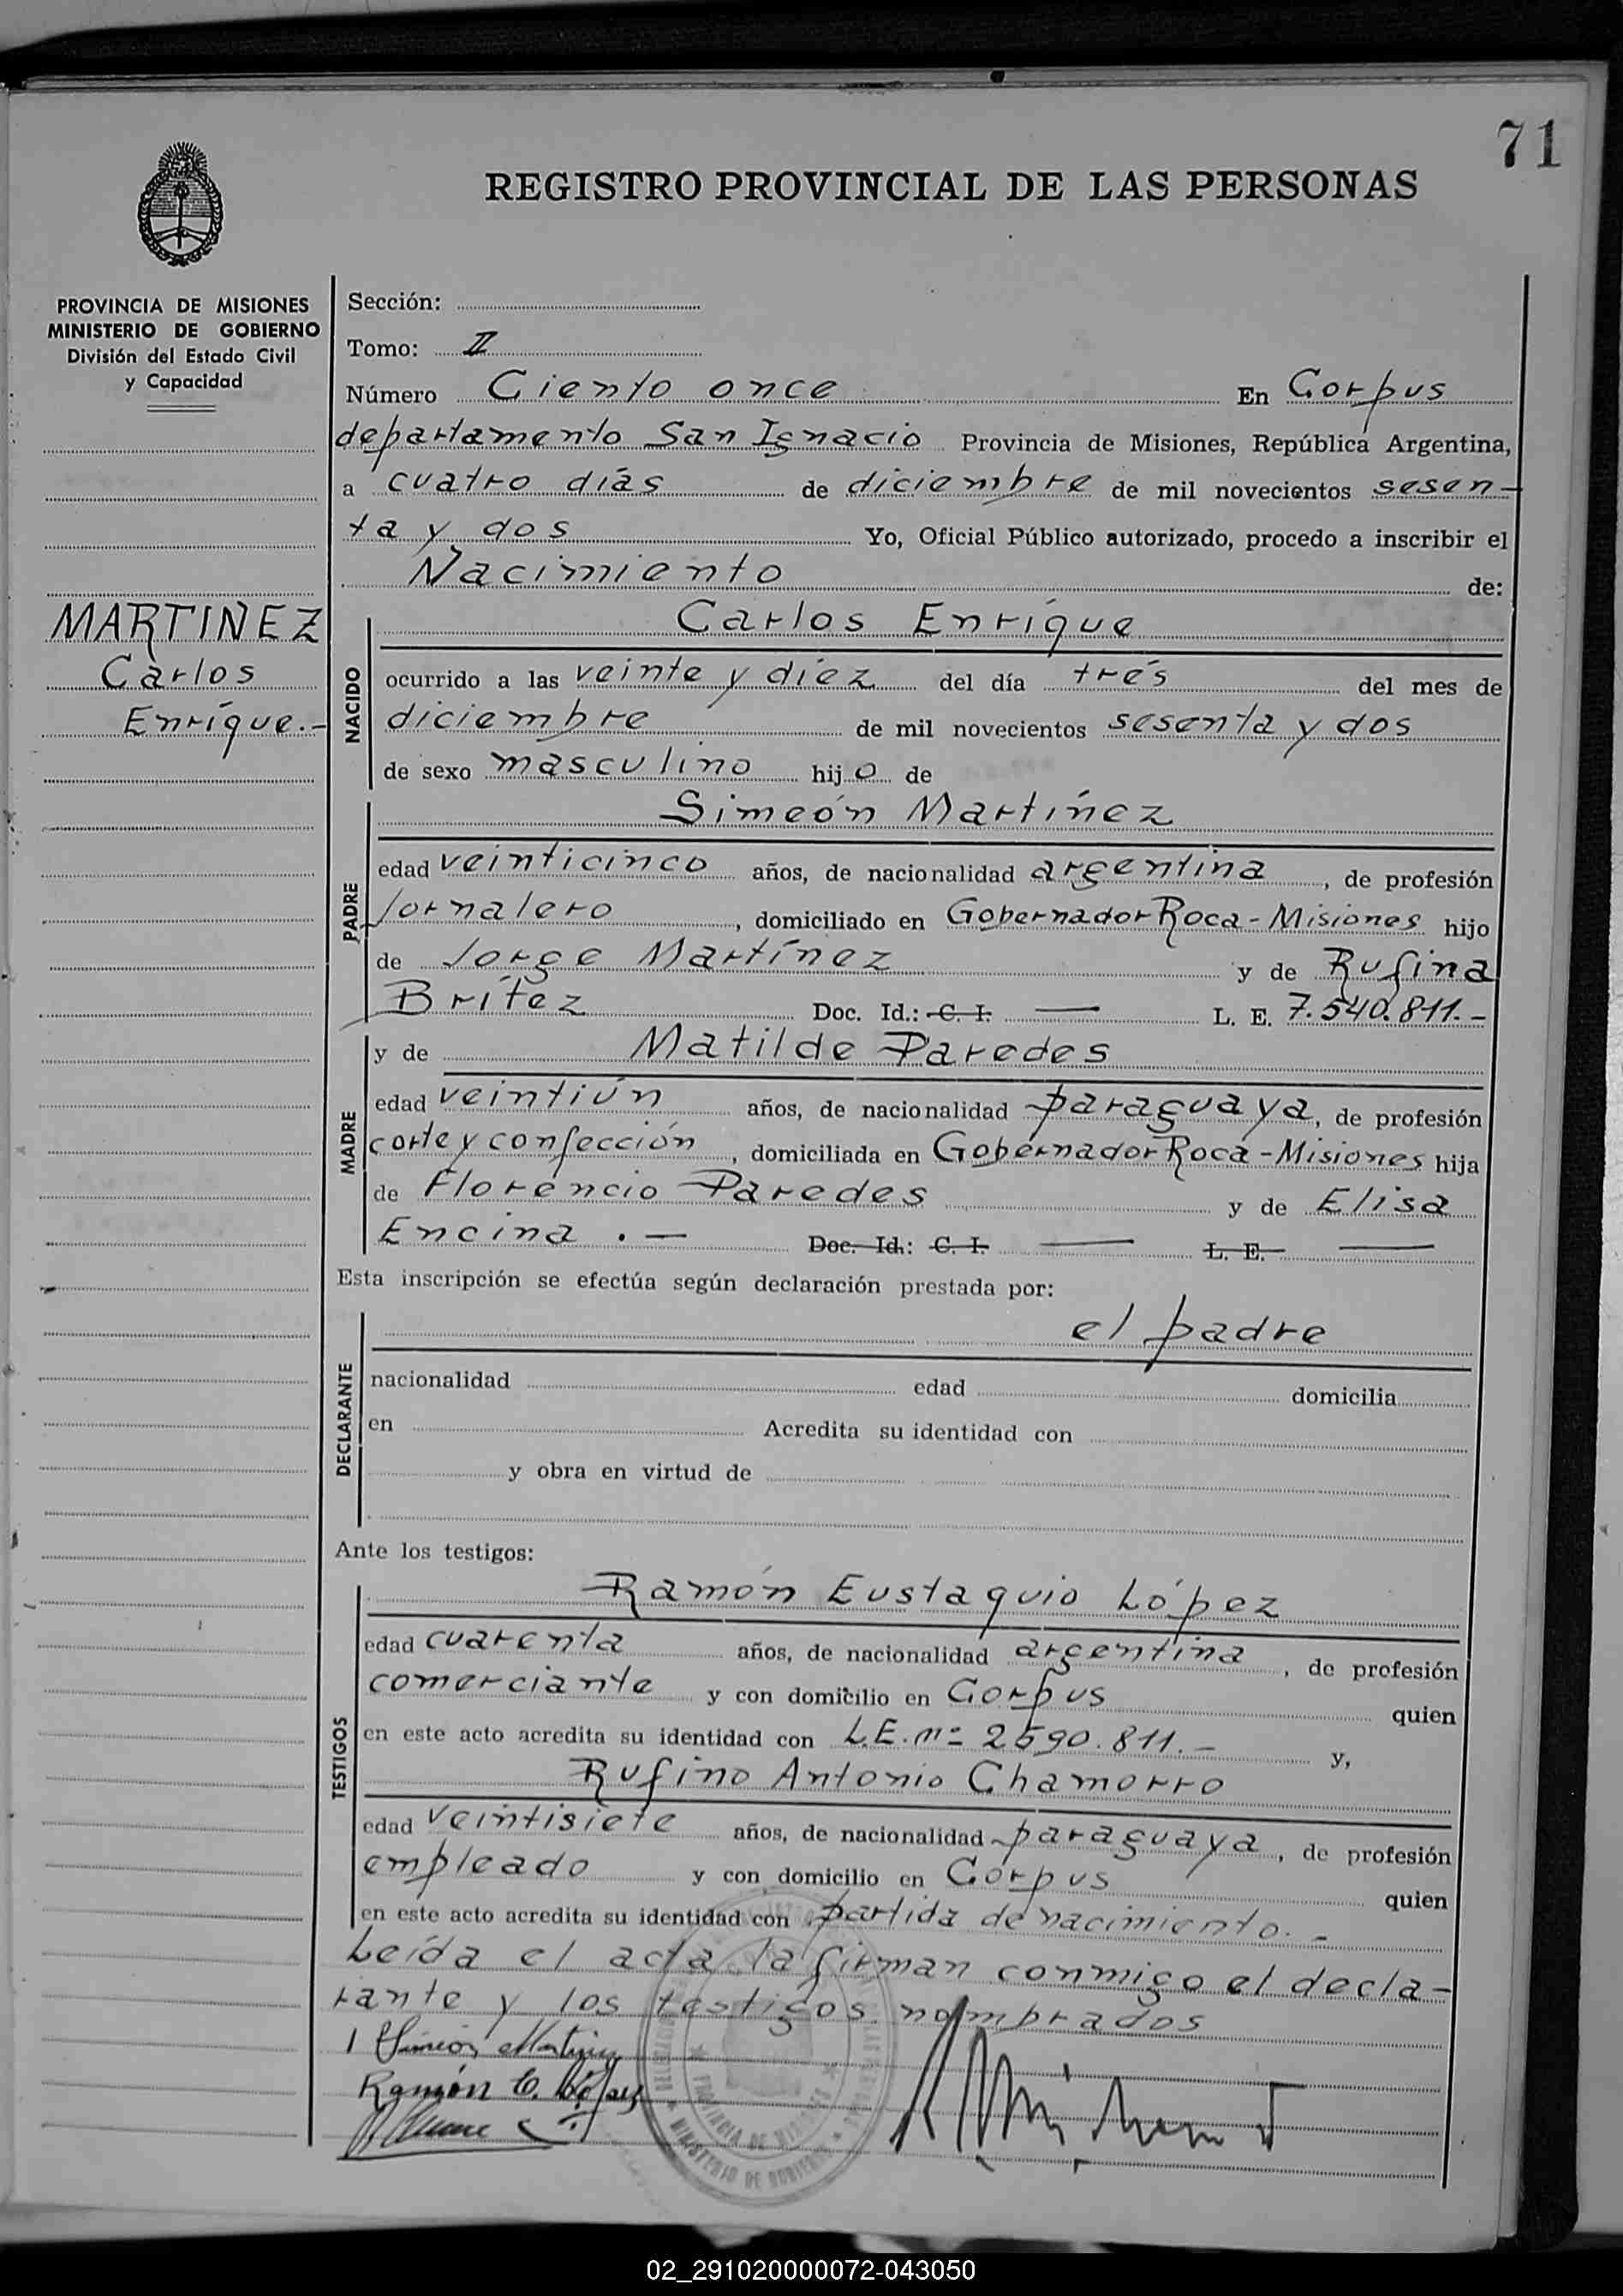 71
REGISTRO PROVINCIAL DE LAS PERSONAS
PROVINCIA DE MISIONES
MINISTERIO DE GOBIERNO
División del Estado Civil
y Capacidad
MARTINEZ
Carlos
Enrique.-
Sección:
Tomo: II
Número Ciento once En Corpus
departamento San Ignacio Provincia de Misiones, República Argentina,
a cuatro días de diciembre de mil novecientos sesen-
ta y dos Yo, Oficial Público autorizado, procedo a inscribir el
Nacimiento de:
NACIDO
Carlos Enrique
ocurrido a las veinte y diez del día tres del mes de
diciembre de mil novecientos sesenta y dos
de sexo masculino hijo de
PADRE
Simeón Martínez
edad veinticinco años, de nacionalidad argentina, de profesión
jornalero, domiciliado en Gobernador Roca - Misiones hijo
de Jorge Martínez y de Rufina
Brítez Doc. Id.: C. I. — L. E. 7.540.811.-
MADRE
y de Matilde Paredes
edad veintiún años, de nacionalidad paraguaya, de profesión
corte y confección, domiciliada en Gobernador Roca - Misiones hija
de Florencio Paredes y de Elisa
Encina .— Doc. Id.: C. I. — L. E. —
Esta inscripción se efectúa según declaración prestada por:
DECLARANTE
el padre
nacionalidad edad domicilia
en Acredita su identidad con
y obra en virtud de
Ante los testigos:
TESTIGOS
Ramón Eustaquio López
edad cuarenta años, de nacionalidad argentina, de profesión
comerciante y con domicilio en Corpus quien
en este acto acredita su identidad con L.E. nº 2590.811.- y,
Rufino Antonio Chamorro
edad veintisiete años, de nacionalidad paraguaya, de profesión
empleado y con domicilio en Corpus quien
en este acto acredita su identidad con partida de nacimiento.-
Leída el acta la firman conmigo el decla-
rante y los testigos nombrados
Simeón Martínez
Ramón E. López
PROVINCIA DE MISIONES
MINISTERIO DE GOBIERNO
02_291020000072-043050